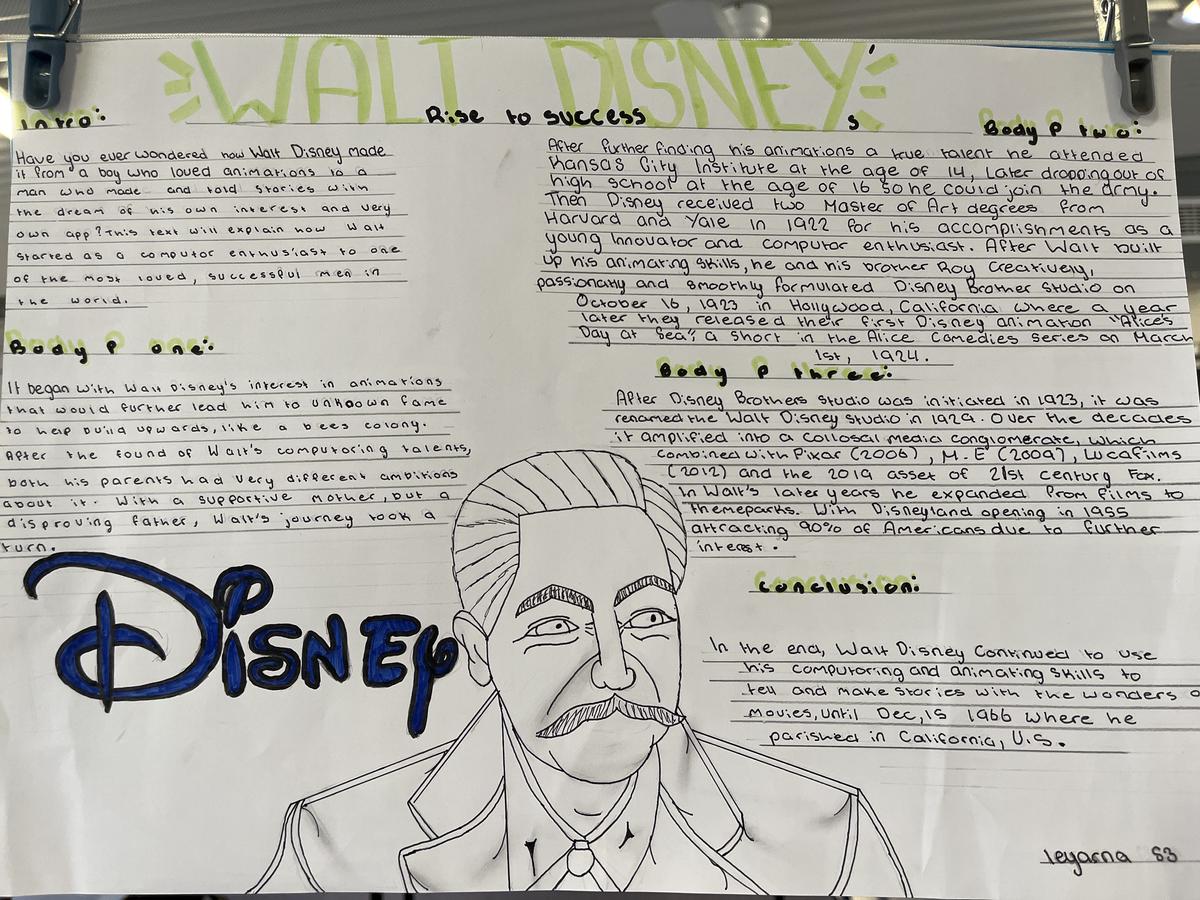 WALT DISNEY's
Rise to success
Intro:
Have you ever wondered how Walt Disney made
it from a boy who loved animations to a
man who made and told stories with
the dream of his own interest and very
own app? This text will explain how Walt
started as a computor enthusiast to one
of the most loved, successful men in
the world.
Body P one:
It began with Walt Disney's interest in animations
that would further lead him to unknown fame
to help build upwards, like a bees colony.
After the found of Walt's computoring talents,
both his parents had very different ambitions
about it. With a supportive mother, but a
disproving father, Walt's journey took a
turn.
Body P two:
After further finding his animations a true talent he attended
Kansas City Institute at the age of 14, Later dropping out of
high school at the age of 16 so he could join the army.
Then Disney received two Master of Art degrees from
Harvard and Yale in 1922 for his accomplishments as a
young Innovator and computor enthusiast. After Walt built
up his animating skills, he and his brother Roy Creatively,
passionatly and smoothly formulated Disney Brother Studio on
October 16, 1923 in Hollywood, California where a year
later they released their first Disney animation "Alice's
Day at Sea", a short in the Alice Comedies series on March
1st, 1924.
Body P three:
After Disney Brothers studio was initiated in 1923, it was
renamed the Walt Disney studio in 1929. Over the decades
it amplified into a collosal media conglomerate, which
combined with Pixar (2006), M.E (2009), Lucafilms
(2012) and the 2019 asset of 21st century Fox.
In Walt's later years he expanded from films to
themeparks. With Disneyland opening in 1955
attracting 90% of Americans due to further
interest.
Conclusion:
In the end, Walt Disney Continued to use
his computoring and animating skills to
tell and make stories with the wonders o
Movies, until Dec, 15 1966 where he
parished in California, U.S.
DISNEY
leyarna S3